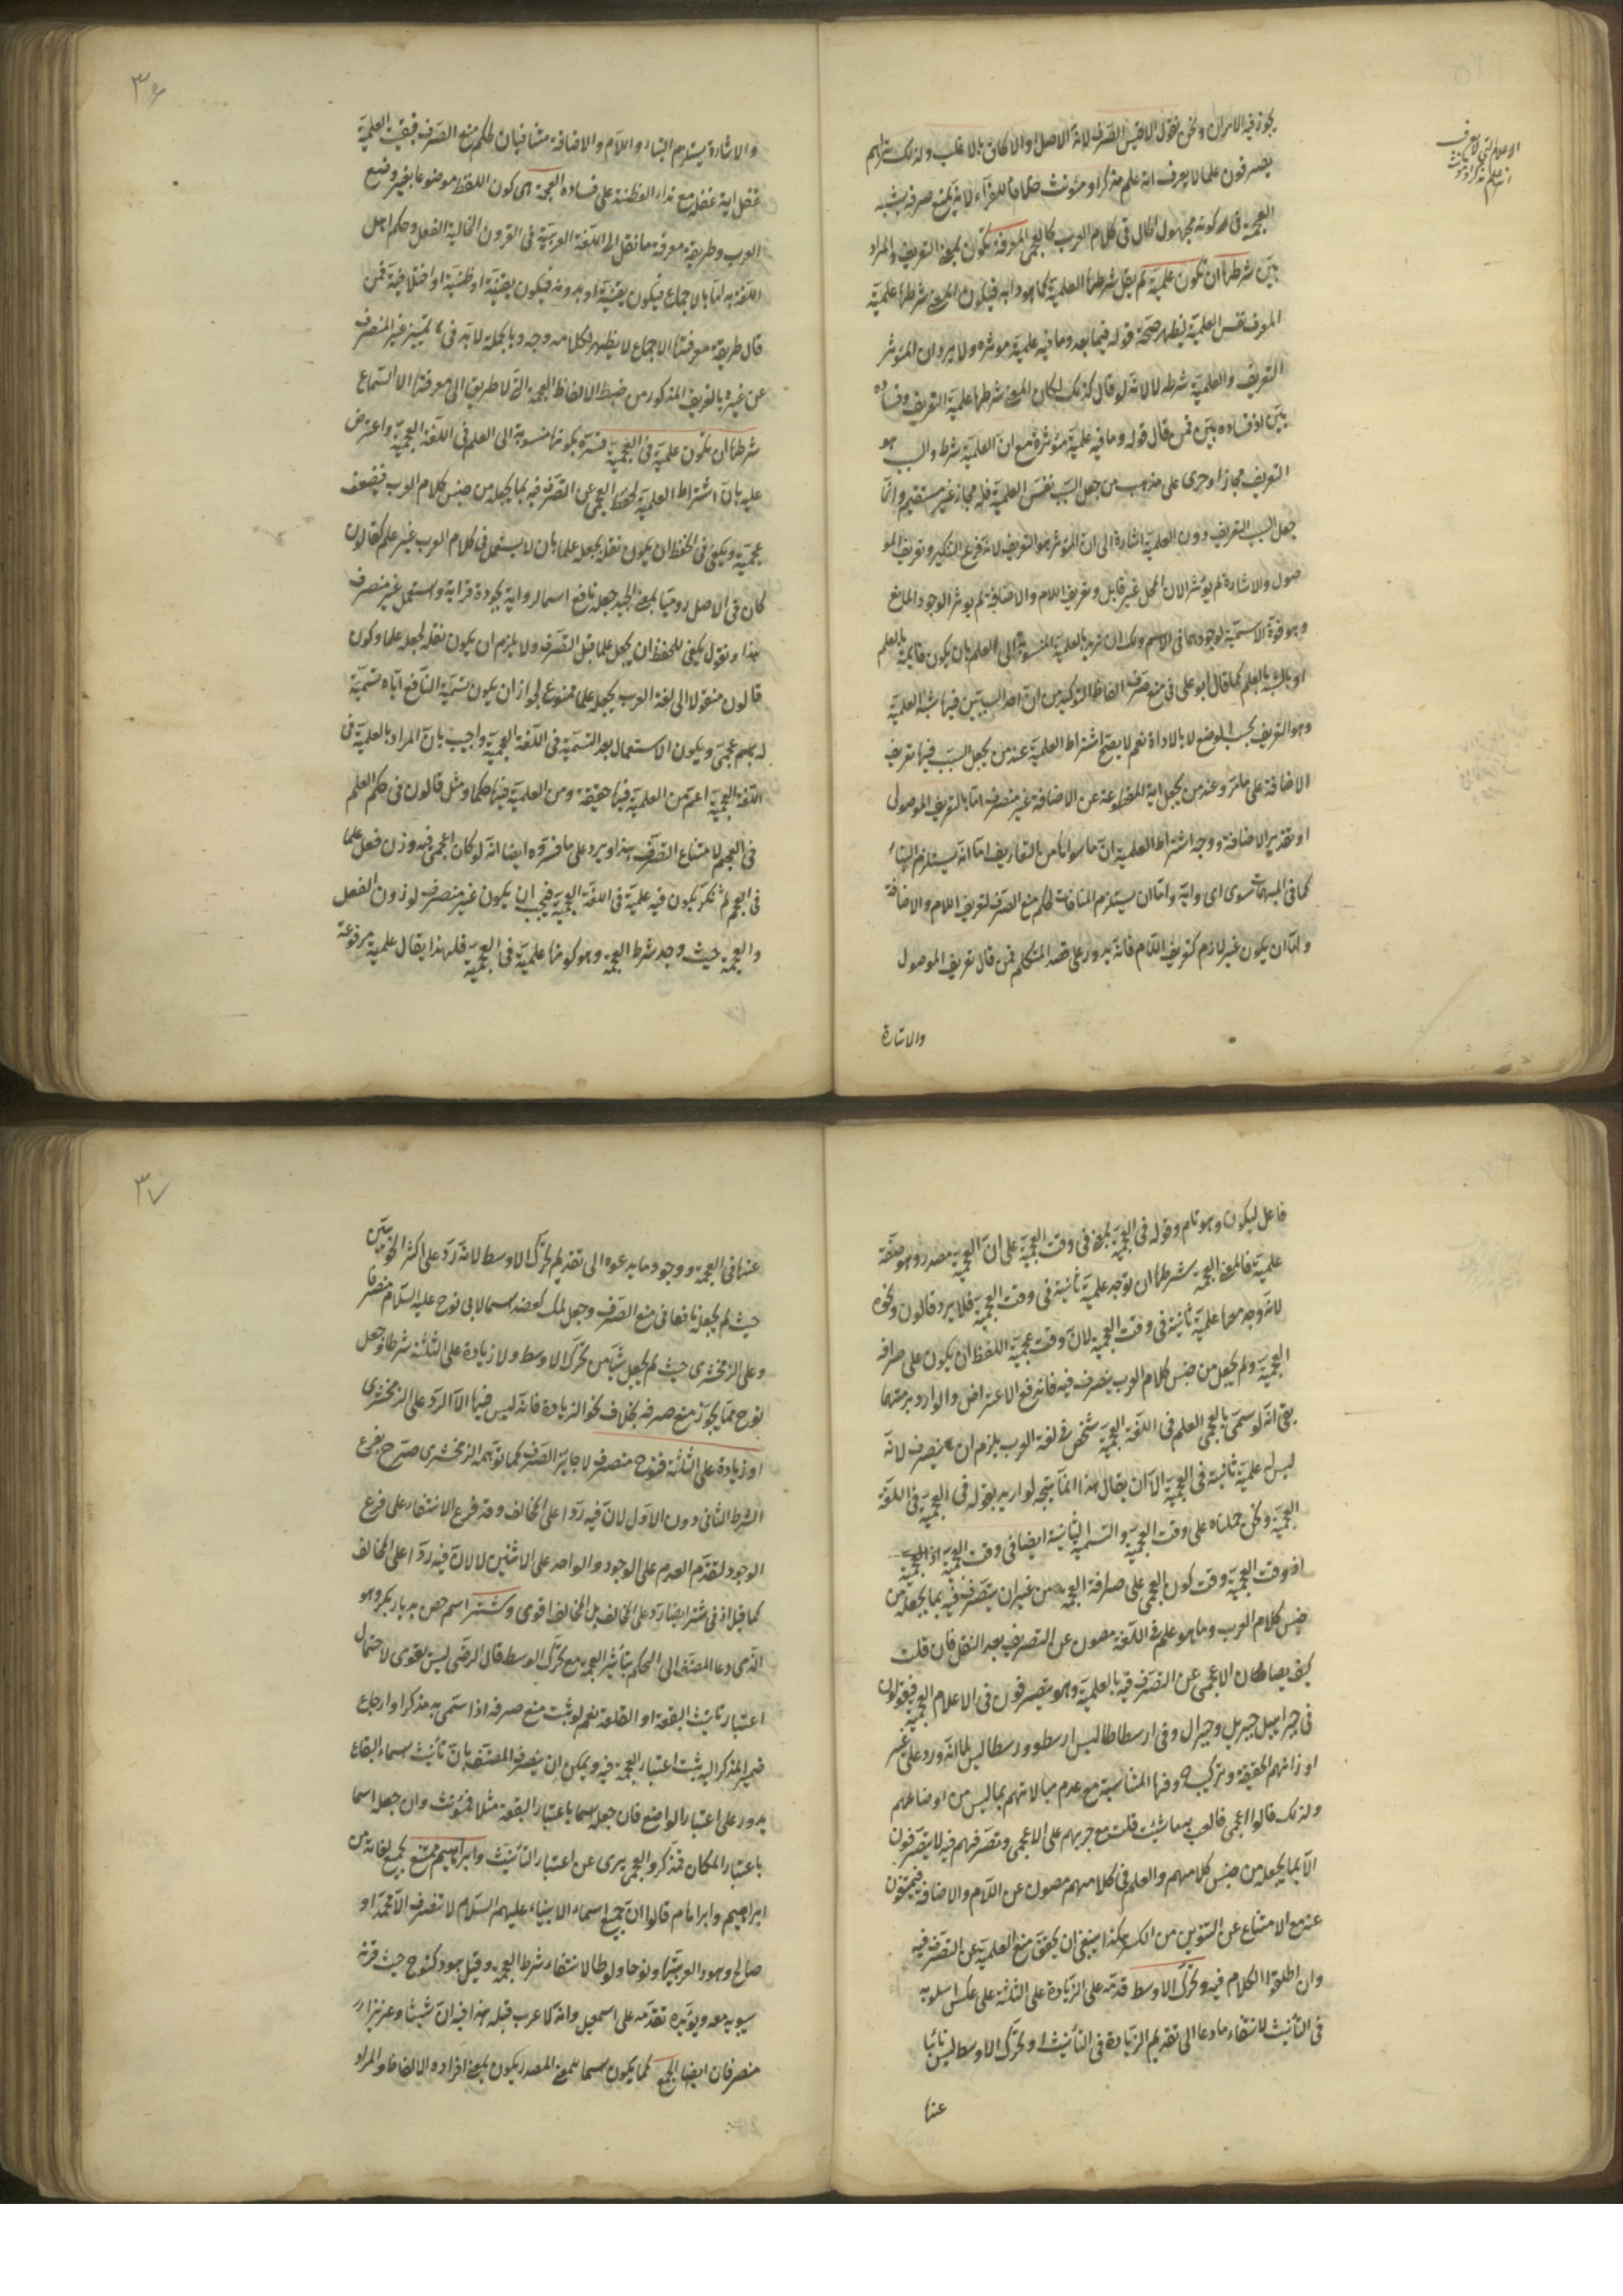 يجوز فيه الامران ونحن نقول الاقيس الصرف لانه الاصل والامكان بالاغلب ولذلك تراهم
يصرفون علما لا يعرف انه علم مذكر او مؤنث خلافا للفراء لانه يمنع صرفه بشبه
العجمة في كونه مجهول الحال في كلام العرب كالعجمي المعرفة تكون بمعنى التعريف والمراد
بين شرطها ان تكون علمية لم يقل شرطها العلمية كما هو دابه فيكون المعنى شرطها علمية
المعرف نفس العلمية ليظهر صحة قوله فيما بعد وما فيه علمية مؤثرة ولا يرد ان المؤثر
التعريف والعلمية شرطه لا لانه لو قال كذلك لكان المعنى شرطها علمية التعريف وفساده
بين اذ فساده بين فمن قال قوله وما فيه علمية مؤثرة مع ان العلمية شرط والسبب هو
التعريف مجاز او جرى على مذهب من جعل السبب نفس العلمية فله مجاز غير مستقيم وانما
جعل السبب التعريف دون العلمية اشارة الى ان المؤثر هو التعريف لانه فرع التنكير وتعريف المو
صول والاشارة لم يؤثر لان المحل غير قابل وتعريف اللام والاضافة لم يوثر لوجود المانع
وهو قوة الاسمية لوجودهما في الاسم ولك ان تريد بالعلمية المنسوبة الى العلم بان يكون قائمة بالعلم
او بالشبه بالعلم كما قال ابو علي في منع صرف الفاظ التوكيد من ان احد السببين فيها شبه العلمية
وهو التعريف بحسب الوضع لا بالاداة نعم لا يصح اشتراط العلمية عند من يجعل السبب فيها تعريف
الاضافة على ما مر وعند من يجعل اية المقطوعة عن الاضافة غير منصرف اما بالتعريف الموصول
او بتقدير الاضافة ووجه اشتراط العلمية ان ما سواها من التعاريف اما انه يستلزم البناء
كما في المبهمات سوى اي واية واما ان يستلزم المنافات لحكم منع الصرف لتعريف اللام والاضافة
واما ان يكون غير لازم كتعريف اللام فانه يدور على قصد المتكلم فمن قال تعريف الموصول
والاشارة
٣٦
والاشارة يستلزم البناء واللام والاضافة متنافيان لحكم منع الصرف فبقيت العلمية
غفل اية غفلة مع نداء الفطنة على فساده العجمة اي كون اللفظ موضوعا بغير وضع
العرب وطريقة معرفة ما نقل الى اللغة العربية في القرون الخالية النقل وحكم اهل
اللغة به اما بالاجماع فيكون يقينية او بدونه فيكون يقينية او ظنية او اختلافية فمن
قال طريقة معرفتها الاجماع لا يظهر لكلامه وجه وبالجملة لا بد في تمييز غير المنصرف
عن غيره بالتعريف المذكور من ضبط الالفاظ العجمة التي لا طريق الى معرفتها الا السماع
شرطها ان تكون علمية في العجمية فسره بكونها منسوبة الى العلم في اللغة العجمية واعترض
عليه بان اشتراط العلمية لحفظ العجمي عن التصرف فيه بما يجعله من جنس كلام العرب فيضعف
عجمية ويكفي في الحفظ ان يكون نقله بجعله علما بان لا يستعمل في كلام العرب غير علم كقالون
كان في الاصل روميا بمعنى الجيد جعله نافع اسما لراويه لجودة قراءته واستعمل غير منصرف
هذا ونقول يكفي للحفظ ان يجعل علما قبل التصرف ولا يلزم ان يكون نقله لجعله علما وكون
قالون منقولا الى لغة العرب بجعله علما ممنوع لجواز ان يكون تسمية النافع اياه تسمية
له باسم عجمي ويكون الاستعمال بعد التسمية في اللغة العجمية واجيب بان المراد بالعلمية في
اللغة العجمية اعم من العلمية فيها حقيقة ومن العلمية فيها حكما ومثل قالون في حكم العلم
في العجم لامتناع التصرف هذا ويرد على ما فسره ايضا انه لو كان اعجمي فيه وزن فعل علما
في العجم ثم نكر يكون فيه علمية في اللغة العجمية فيجب ان يكون غير منصرف لوزن الفعل
والعجمة حيث وجد شرط العجمة وهو كونها علمية في العجمية فلهذا يقال علمية مرفوعة
فاعل ليكون وهو تام وقوله في العجمية بمعنى في وقت العجمية على ان العجمية مصدر وهو صفة
علمية فالمعنى العجمة شرطها ان توجد علمية ثانية في وقت العجمية فلا يرد قالون ونحوه
لانه وجد معها علمية ثانية في وقت العجمية لان وقت عجمية اللفظ ان يكون على صرافة
العجمية ولم يجعل من جنس كلام العرب يتصرف فيه فاندفع الاعتراض والوارد برمتهما
بقي انه لو سمي بالعجمي العلم في اللغة العجمية شخص في لغة العرب يلزم ان ينصرف لانه
ليس له علمية ثانية في العجمية الا ان يقال هذا انما يتجه لو اريد بقوله في العجمية في اللغة
العجمية ونحن حملناه على وقت العجمية والتسمية الثانية ايضا في وقت العجمية اذ العجمية
اذ وقت العجمية وقت كون العجمي على صرافة العجمة من غير ان يتصرف فيه بما يجعله من
جنس كلام العرب وما هو علم في اللغة مصون عن التصريف بعد النقل فان قلت
كيف يصان الاعجمي عن التصرف فيه بالعلمية وهو يتصرفون في الاعلام العجمية فيقولون
في جبراييل جبريل وجبرال وفي ارسطاطاليس ارسطو ورسطاليس لما انه ورد على غير
اوزانهم الخفيفة وتركيب حروفها المتناسبة مع عدم مبالاتهم بما ليس من اوضاعهم
ولذلك قالوا اعجمي فالعب به ما شئت قلت مع جريهم على الاعجمي وتصرفهم فيه لا يتصرفون
الا بما يجعله من جنس كلامهم والعلم في كلامهم مصون عن اللام والاضافة فيمتنعون
عنه مع الامتناع عن التنوين من الكسر هكذا ينبغي ان يحقق منع العلمية عن التصرف فيه
وان اطلقوا الكلام فيه وتحرك الاوسط قدمه على الزيادة على الثلثة على عكس اسلوبه
في التأنيث لانتفاء ما دعا الى تقديم الزيادة في التأنيث او تحرك الاوسط ليس نائبا
عنها
٣٧
عنها في العجمة ووجود ما يدعوه الى تقديم تحرك الاوسط لانه رد على اكثر النحويين
حيث لم يجعله نافعا في منع الصرف وجعل لمك كعضد اسما لابي نوح عليه السلام منصرفا
وعلى الزمخشري حيث لم يجعل شيأ من تحرك الاوسط ولا زيادة على الثلثة شرطا وجعل
نوح مما يجوز منع صرفه بخلاف نحو الزيادة فانه ليس فيها الا الرد على الزمخشري
او زيادة على الثلثة فنوح منصرف لا جايز الصرف كما توهمه الزمخشري صرح بفرع
الشرط الثاني دون الاول لان فيه ردا على المخالف وقد فرع الانتفاء على فرع
الوجود لتقدم العدم على الوجود والواحد على الاثنين لا لان فيه ردا على المخالف
كما قيل اذ في شتر ايضا رد على المخالف بل المخالف اقوى وشتر اسم حصن بديار بكر وهو
الذي دعا المصنف الى الحكم بتأثير العجمة مع تحرك الوسط قال الرضي ليس بقوي لاحتمال
اعتبار تانيث البقعة او القلعة نعم لو ثبت منع صرفه اذا سمي به مذكر او ارجاع
ضمير المذكر اليه ثبت اعتبار العجمة فيه ويمكن ان ينصر المصنف بان تأنيث اسماء البقاع
يدور على اعتبار الواضع فان جعله اسما باعتبار البقعة مثلا فمؤنث وان جعله اسما
باعتبار المكان فمذكر والعجمي بري عن اعتبار التأنيث وابراهيم ممتنع بجميع لغاته من
ابراهيم وابراهام قالوا ان جميع اسماء الانبياء عليهم السلام لا تنصرف الا محمدا و
صالح وهود العربيتها ونوحا ولوطا لانتفاء شرط العجمة وقيل هود كنوح حيث قرنه
سيبويه معه ويؤيده تقدمه على اسمعيل وانه لا عرب قبله هذا فيه ان شيثا وعزيزا
منصرفان ايضا الجمع كما يكون اسما بمعنى المصدر يكون بمعنى افراده الالفاظ والمراد